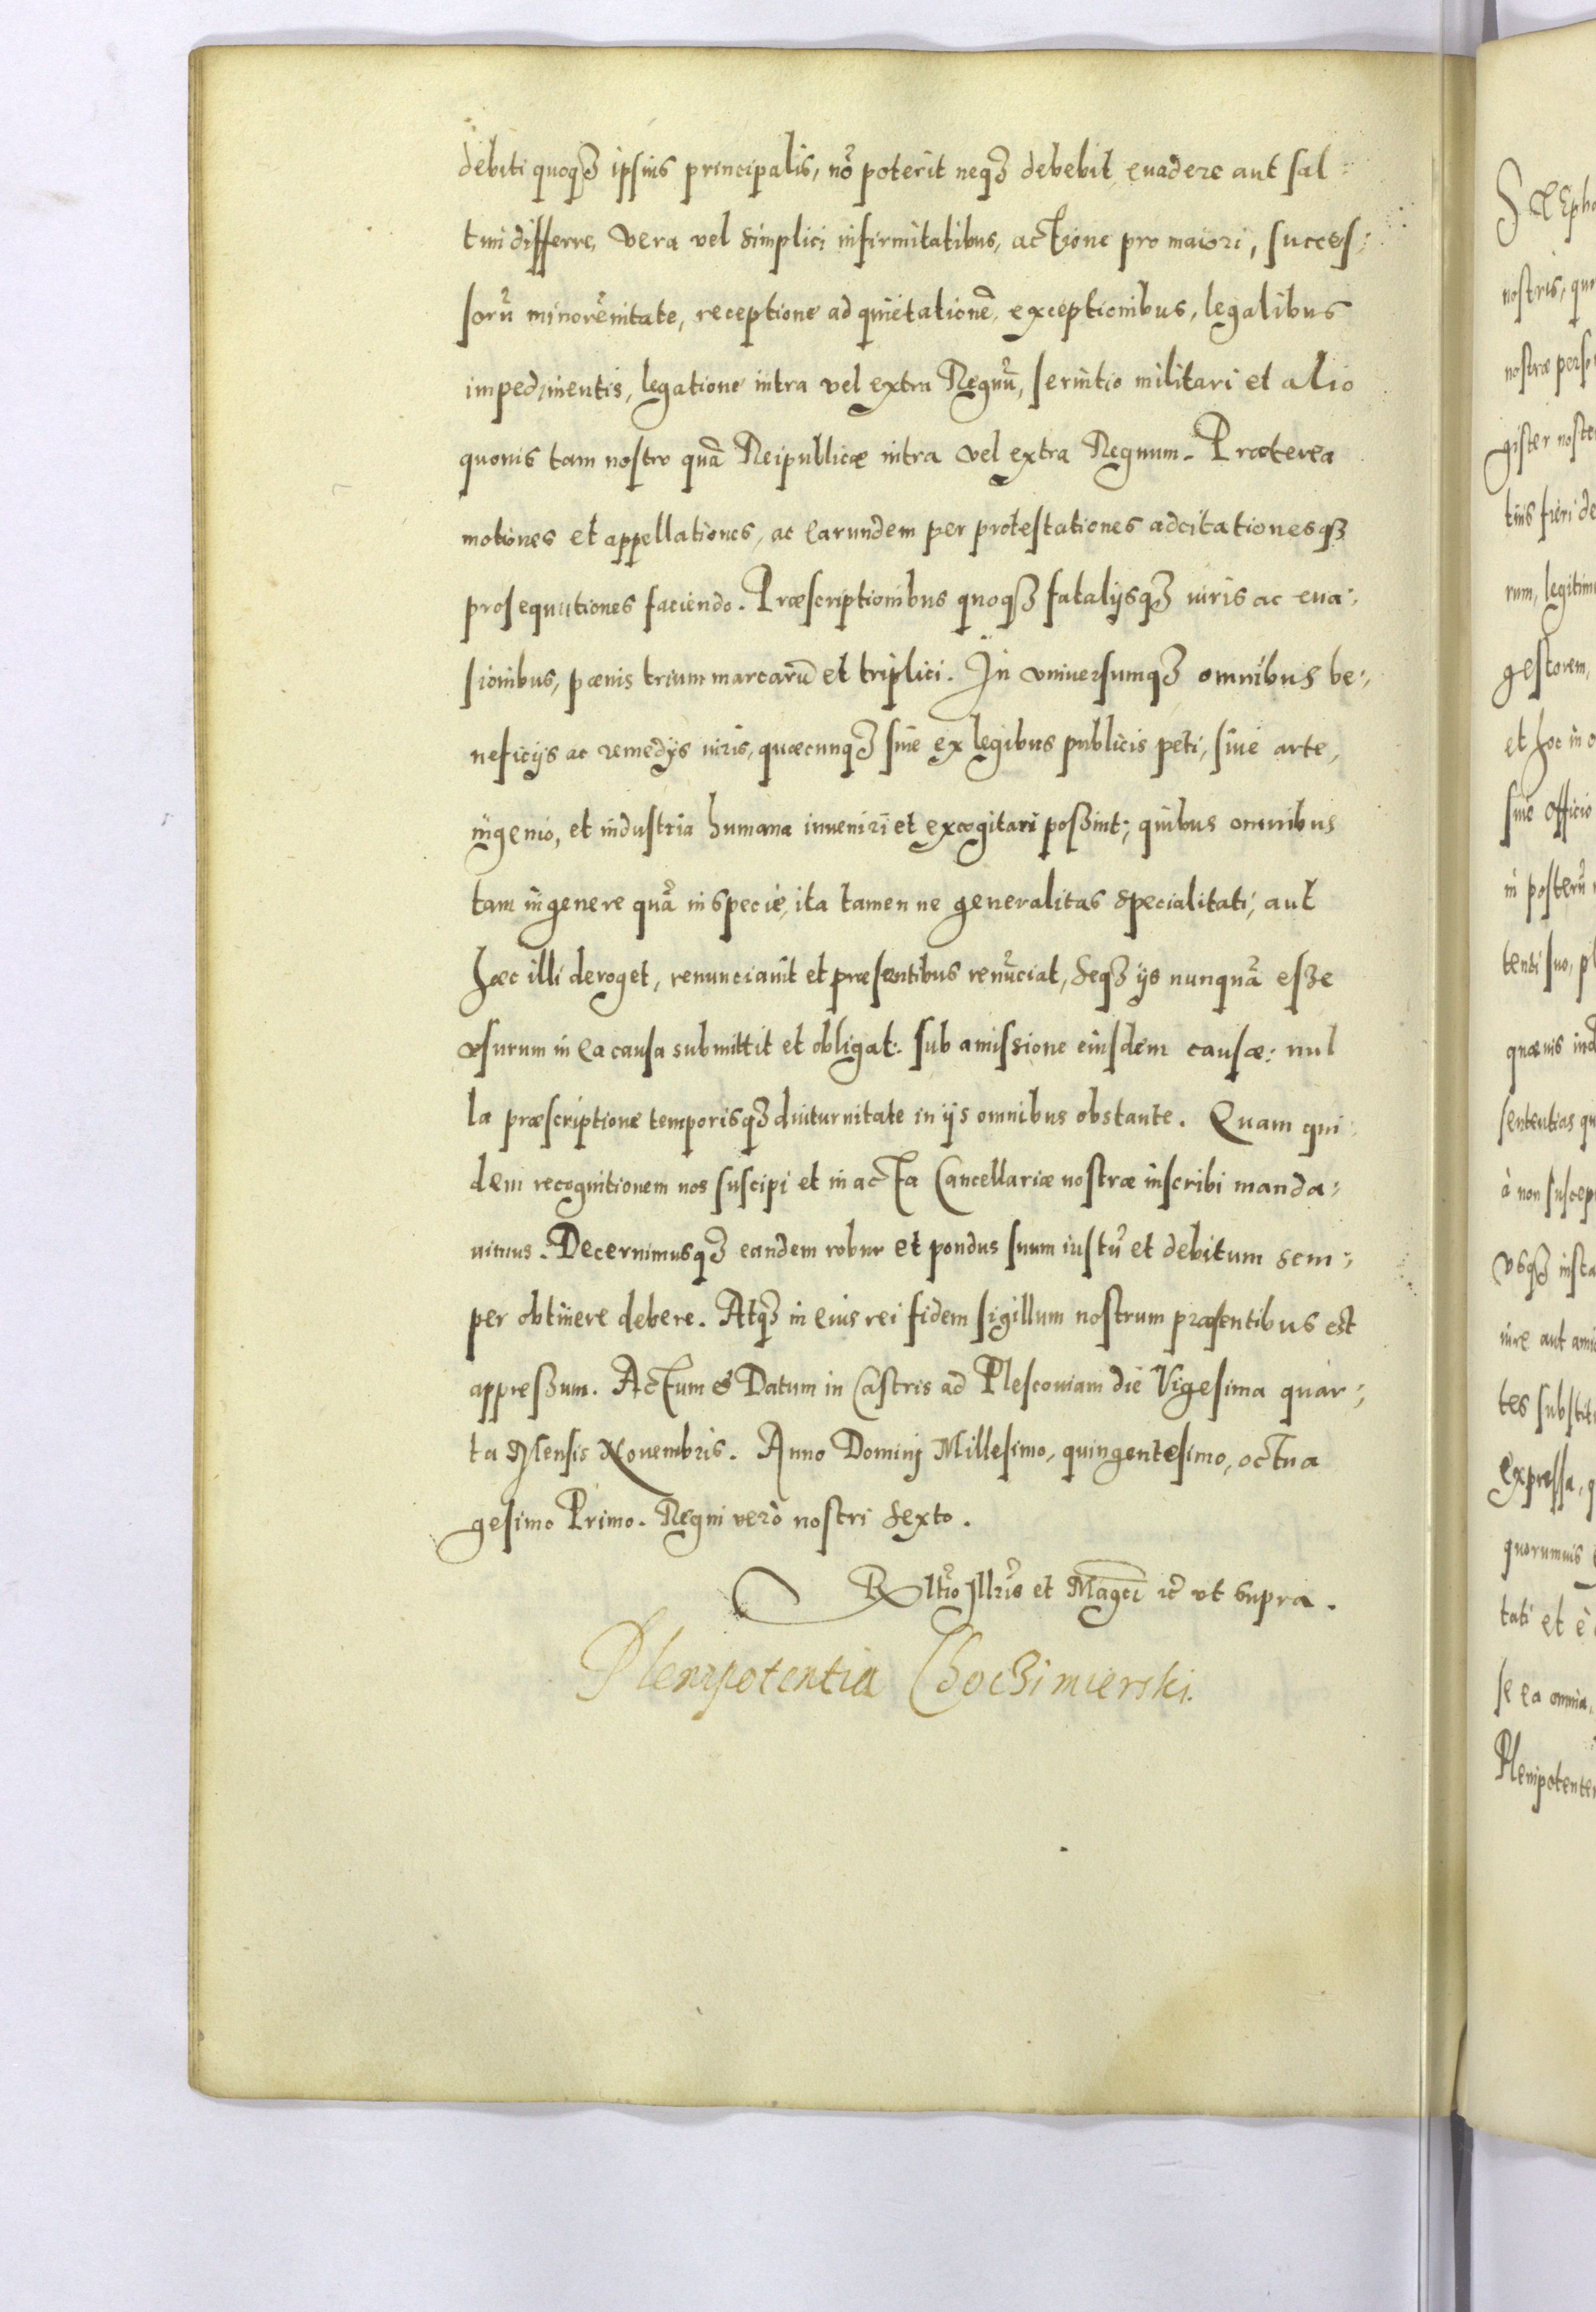 debiti quoqꝫ ipsius principalis, nõ poterit neqꝫ debebit euadere aut sal:
tuu differre, vera vel simplici infirmitatibus, actione pro maiori, succes:
sorũ minorẽnitate, receptione ad quietationẽ, exceptionibus, legalibus
impedimentis, legatione intra vel extra Regnũ, seruitio militari et alio
quouis tam nostro quã Reipublicæ intra vel extra Regnum. Præterea
motiones et appellationes, ac earundem per protestationes adcitationesqꝫ
prosequutiones faciendo. Præscriptionibus quoqꝫ fatalijsqꝫ iuris ac eua:
sionibus, pœnis trium marcarũ et triplici. In vniuersumqꝫ omnibus be:
neficijs ac remedijs iuris, quæcunqꝫ siue ex legibus publicis peti, siue arte,
ingenio, et industria humana inueniri et excogitari poßint; quibus omnibus
tam in genere quã in specie, ita tamen ne generalitas specialitati, aut
hæc illi deroget, renunciauit et præsentibus renũciat, seqꝫ ijs nunquã esse
vsurum in ea causa submittit et obligat: sub amissione eiusdem causæ: nul
la præscriptione temporisqꝫ diuturnitate in ijs omnibus obstante. Quam qui:
dem recognitionem nos suscipi et in acta Cancellariæ nostræ inscribi manda:
uimus. Decernimusqꝫ eandem robur et pondus suum iustũ et debitum sem:
per obtinere debere. Atqꝫ in eius rei fidem sigillum nostrum præsentibus est
appreßum. Actum & Datum in Castris ad Plescouiam die Vigesima quar:
ta Mensis Nouembris. Anno Domini Millesimo, quingentesimo, octua
gesimo Primo. Regni verò nostri sexto.
Rltio Illris et Magci ꝛc̃ vt supra.
Plenipotentia Choczimierski.
nostris, qu
nostræ perso
gister noste
tuis fieri de
rum, legitim
gestorem,
et hoc in o
siue officio
in posterũ
tenti suo, pl
quæuis iud
sententias qu
à non suscep
vsqꝫ insta
iure aut ami
tes substit
expressa, q
quorumuis
tati et è
se ea omnia,
Plenipotente